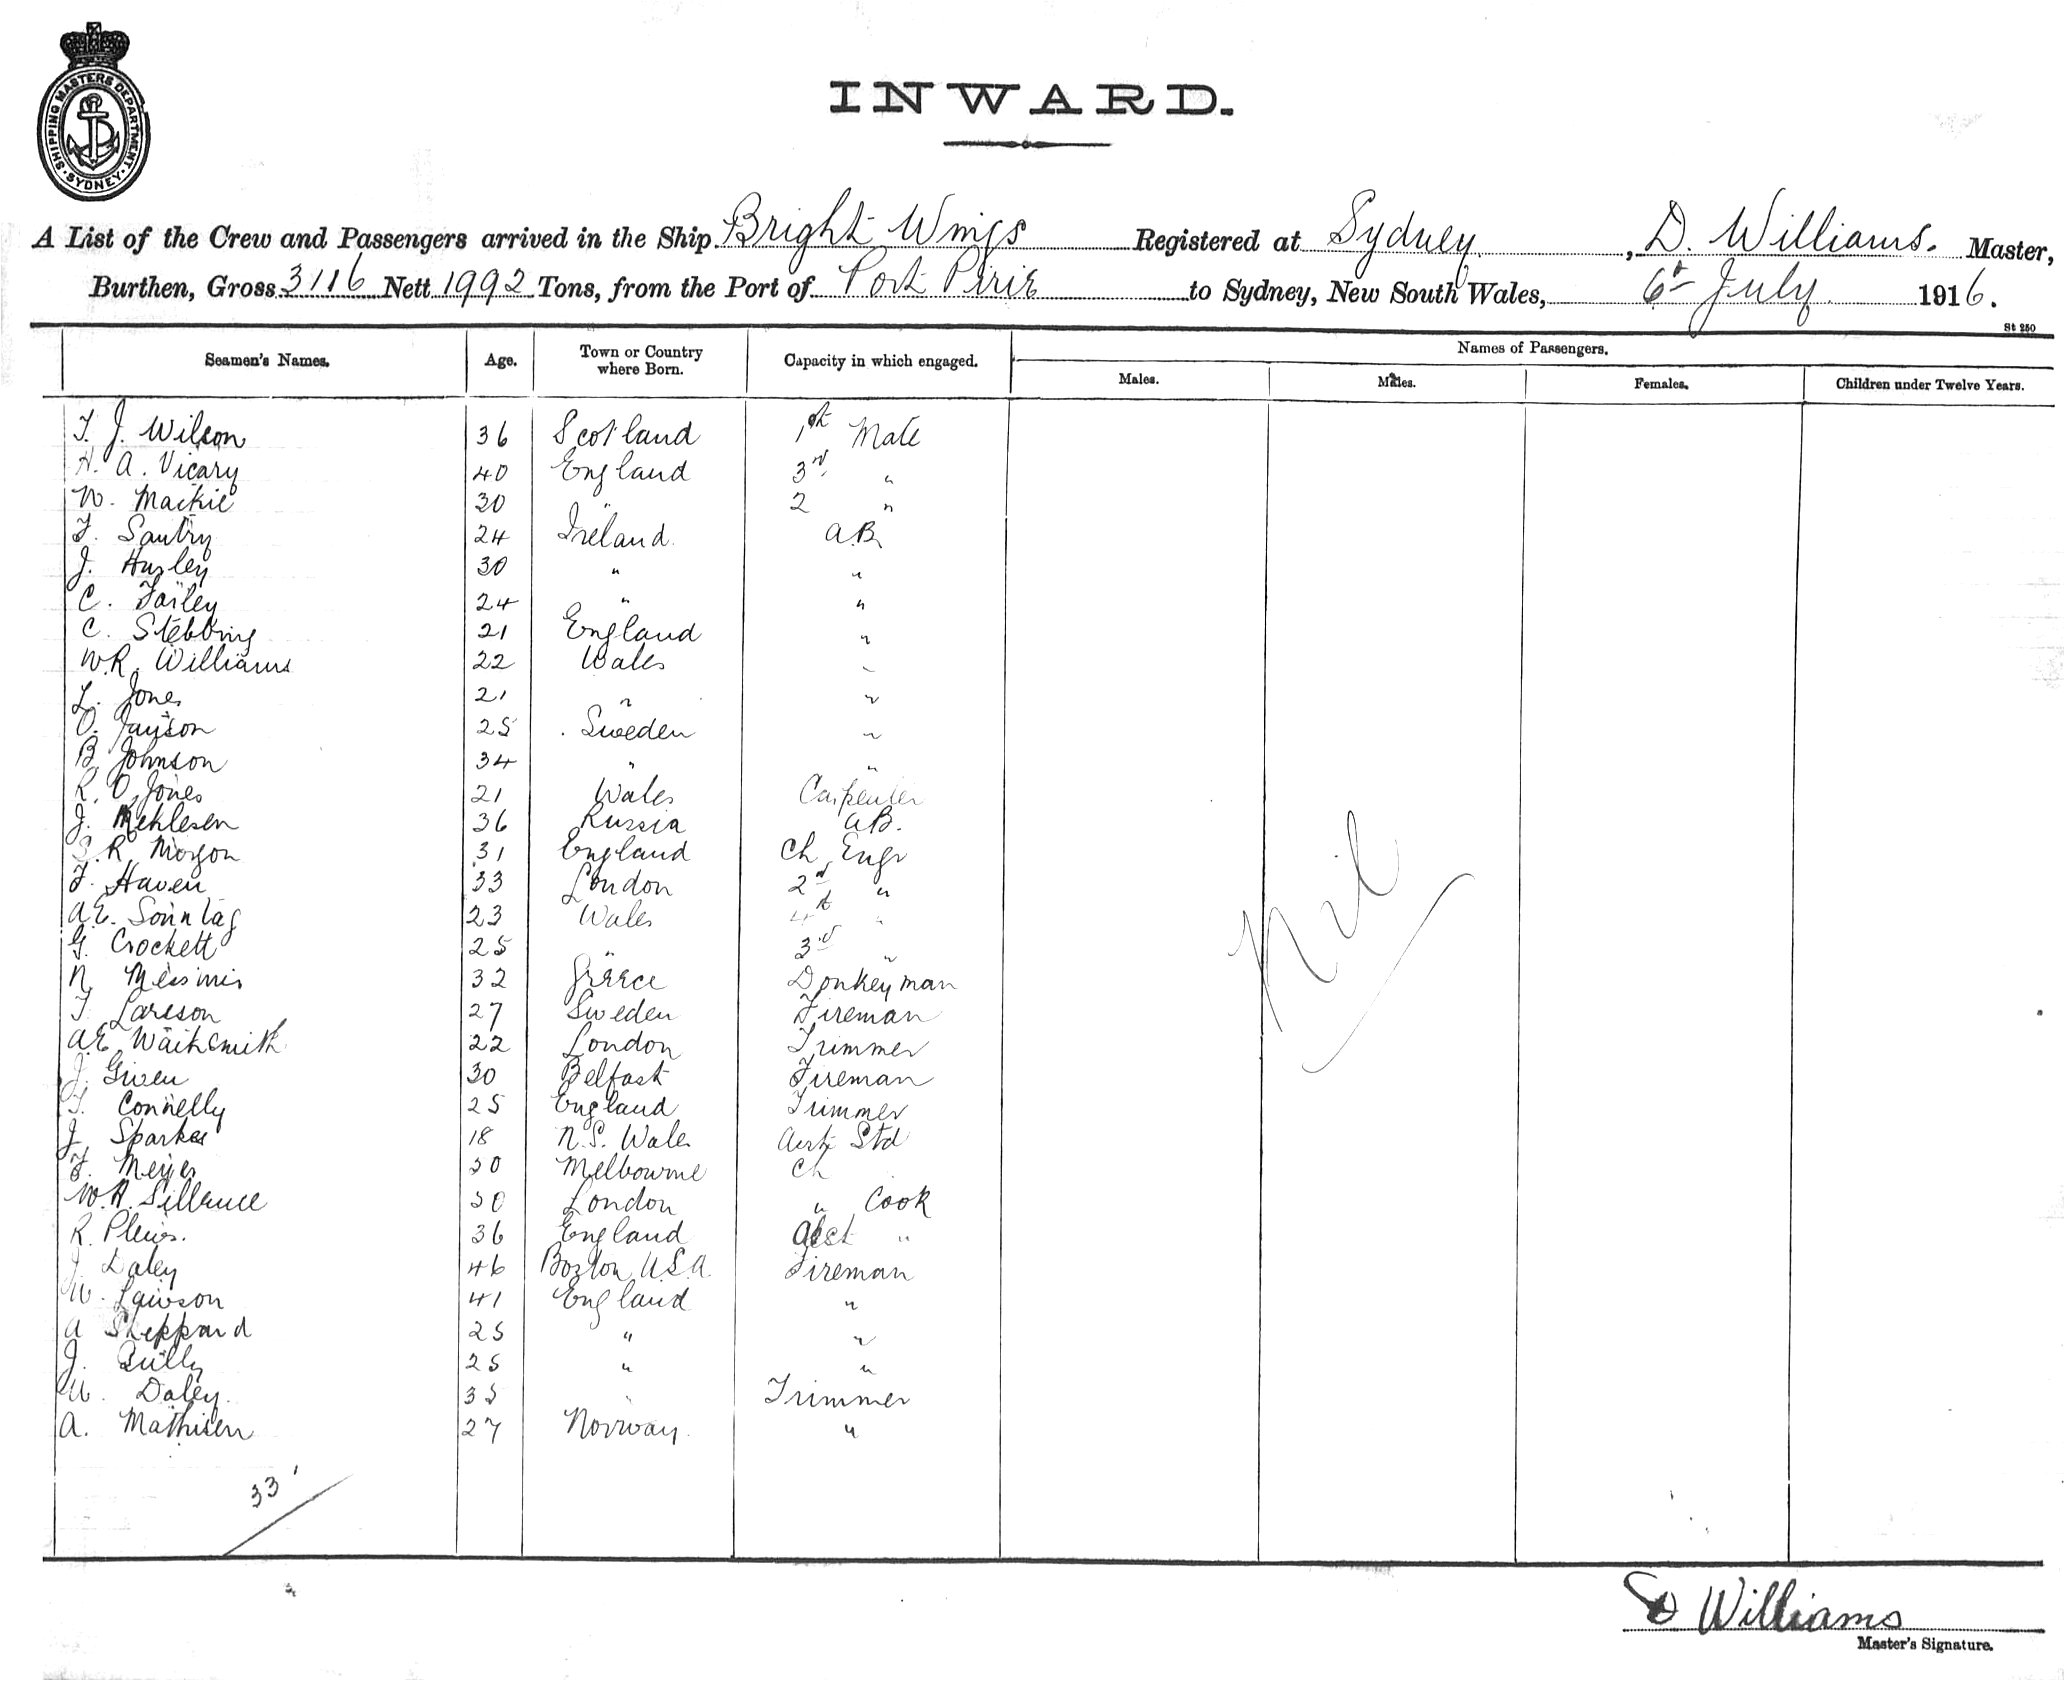 SHIPPING MASTERS DEPARTMENT · SYDNEY ·
INWARD.
A List of the Crew and Passengers arrived in the Ship Bright Wings Registered at Sydney, D. Williams. Master,
Burthen, Gross 3116 Nett 1992 Tons, from the Port of Port Pirie to Sydney, New South Wales, 6th July 1916.
St 250
Seamen's Names. Age. Town or Country where Born. Capacity in which engaged. Names of Passengers.
Males. Males. Females. Children under Twelve Years.
T. J. Wilson 36 Scotland 1st Mate
H. A. Vicary 40 England 3rd "
W. Mackie 30 " 2 "
F. Santry 24 Ireland. A.B.
J. Hurley 30 " "
C. Farley 24 " "
C. Stebbing 21 England "
W.R. Williams 22 Wales "
L. Jones 21 " "
O. Jayson 25 Sweden "
B. Johnson 34 " "
R. O. Jones 21 Wales Carpenter
J. Mehlesen 36 Russia A.B.
R. Morgon 31 England Ch Engr
F. Haven 33 London 2nd "
A.E. Sonntag 23 Wales 4th "
G. Crockett 25 " 3rd "
N. Messinis 32 Greece Donkeyman
T. Larsson 27 Sweden Fireman
A.E. Waiksmith 22 London Trimmer
J. Given 30 Belfast Fireman
T. Connelly 25 England Trimmer
J. Sparkes 18 N.S. Wales Asst Std
F. Meyer 30 Melbourne Ch
W.H. Sillence 30 London " Cook
R. Plews. 36 England Asst "
J. Daley 46 Boston U.S.A. Fireman
W. Lawson 41 England "
A Sheppard 25 " "
J. 25 " "
W. Daley. 35 " Trimmer
A. Mathisen 27 Norway. "
Nil
33
D Williams
Master's Signature.